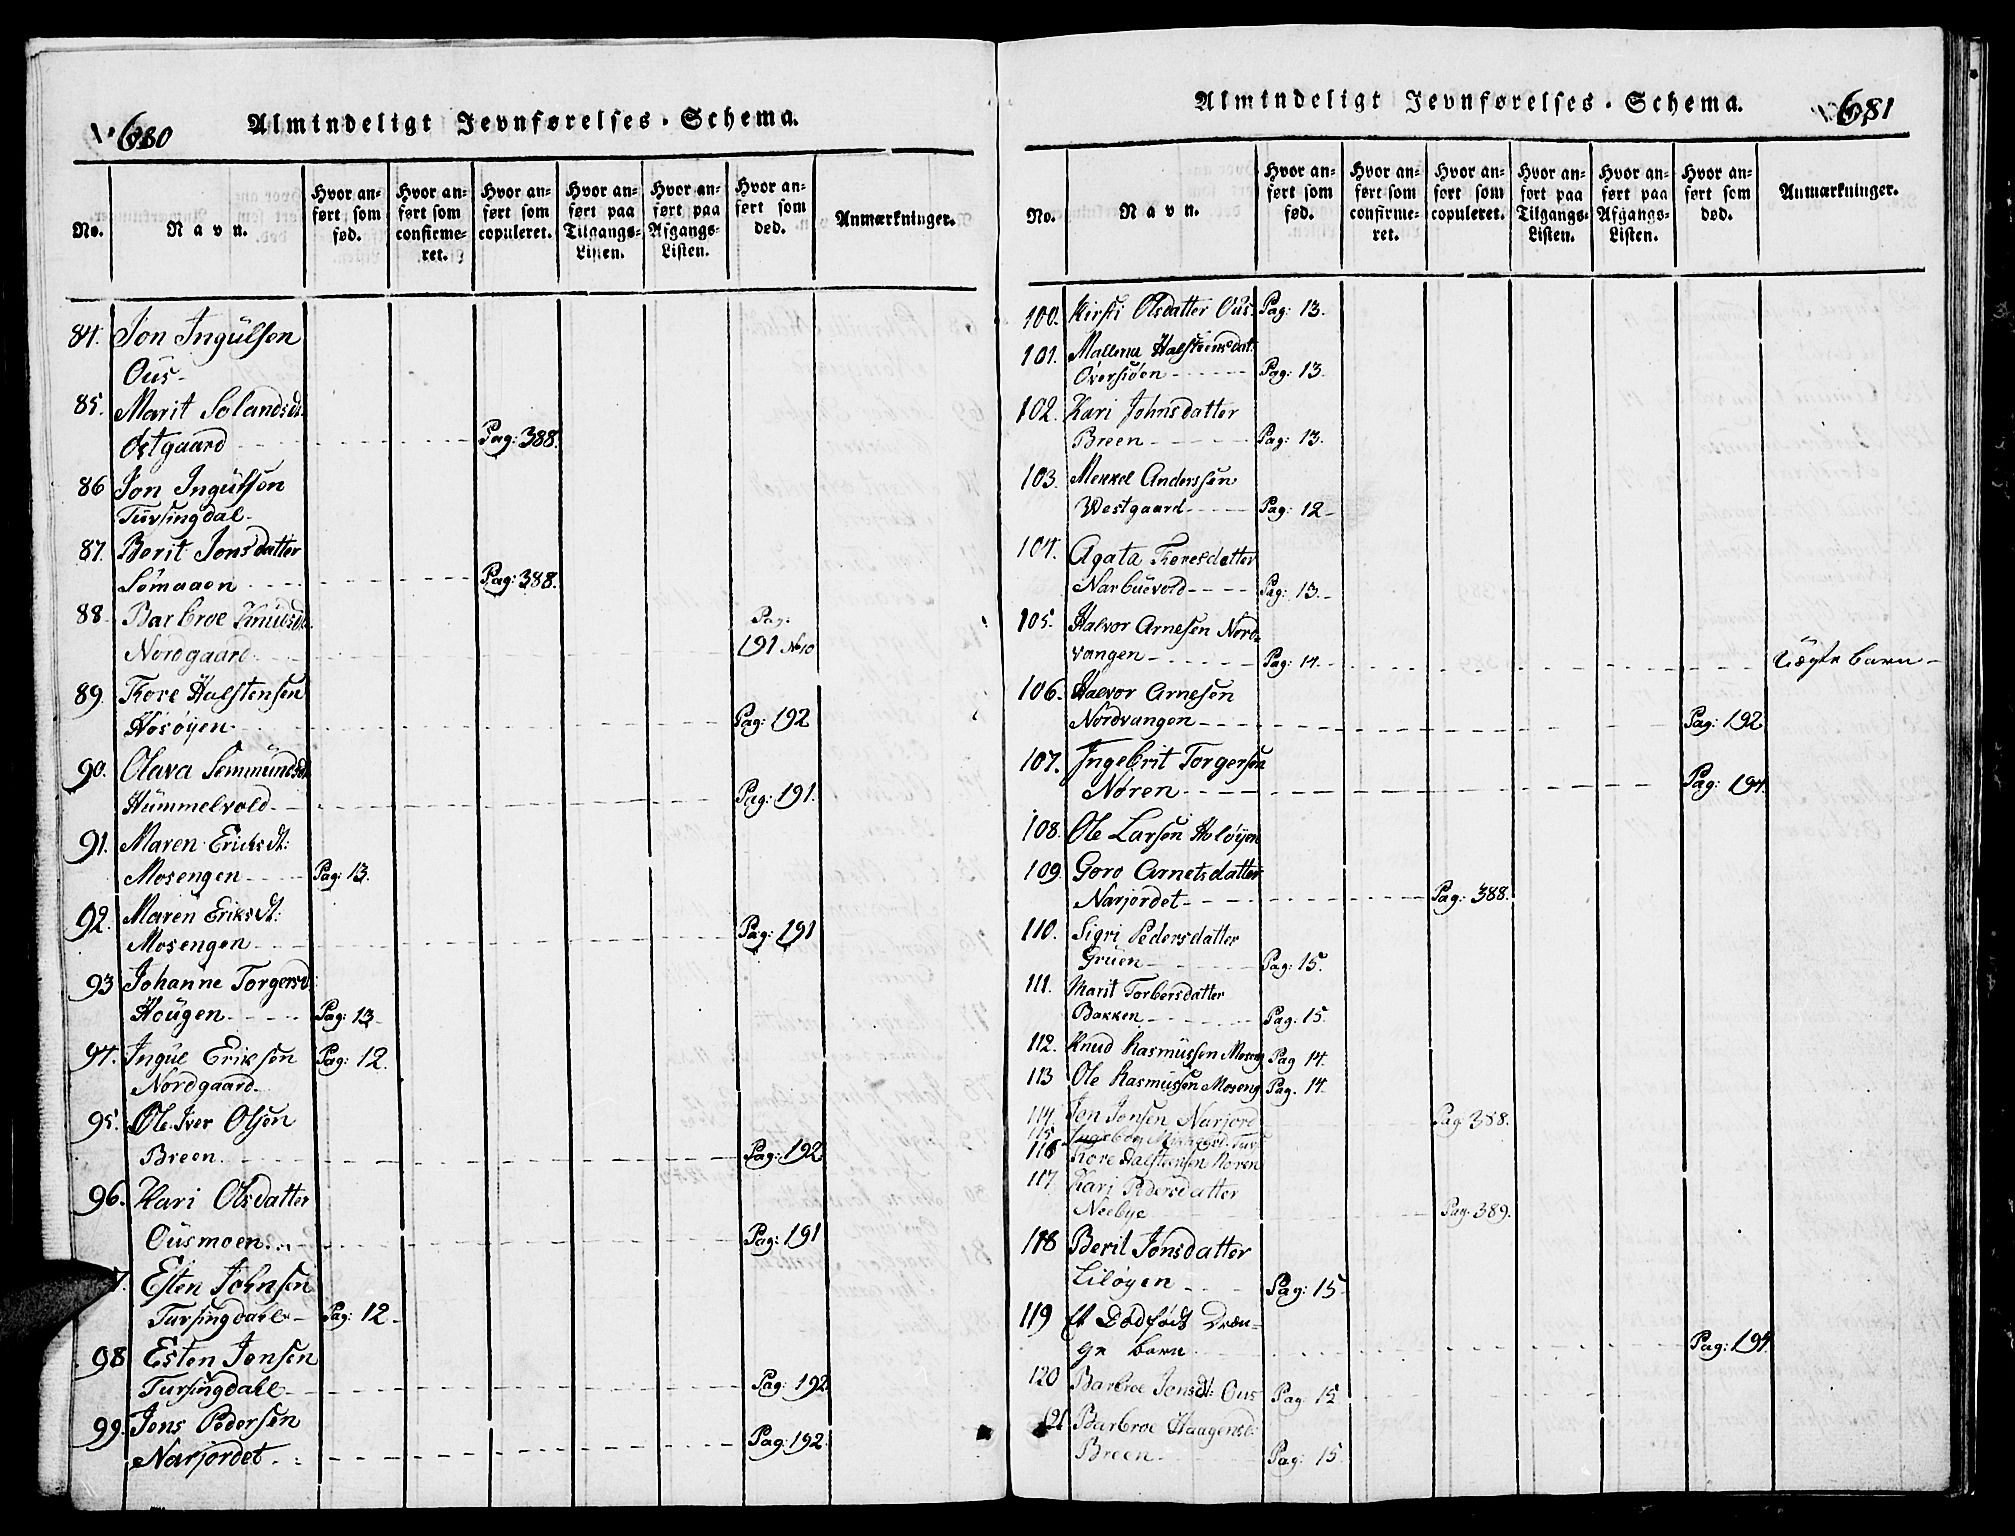 680
Almindeligt Jevnførelses-Schema.
No.
Navn.
Hvor anført som fød.
Hvor anført som confirmeret.
Hvor anført som copuleret.
Hvor anført paa Tilgangs-Listen.
Hvor anført paa Afgangs-Listen.
Hvor anført som død.
Anmærkninger.
84. Jon Ingülsen
Ous-
85. Marit Solandsd.
Østgaard Pag: 388.
86 Jon Ingülsen
Tursingdal-
87. Berit Jonsdatter
Sømaaen Pag: 388.
88. Barbroe Knüdsd. Pag.
Nordgaard 191 No 10
89. Tore Halstensen
Høsøyen Pag: 192
90. Olava Semmündsd.
Hümmelvold Pag: 191.
91. Maren Eriksdt:
Mosengen Pag: 13.
92. Maren Eriksdt:
Mosengen Pag: 191
93 Johanne Torgersd:
Hougen Pag: 13
94. Ingül Eriksen Pag: 12
Nordgaard
95. Ole Iver Olsen
Breen Pag: 192
96. Kari Olsdatter
Ousmoen Pag: 191
7. Esten Johnsen
Tursingdahl Pag: 12
98 Esten Jonsen
Tursingdahl Pag: 192.
99. Jens Pedersen
Narjordet Pag: 192.
Almindeligt Jevnførelses-Schema.
681
No.
Navn.
Hvor anført som fød.
Hvor anført som confirmeret.
Hvor anført som copuleret.
Hvor anført paa Tilgangs-Listen.
Hvor anført paa Afgangs-Listen.
Hvor anført som død.
Anmærkninger.
100. Kirsti Olsdatter Ous Pag: 13.
101. Mallena Halsteensdat:
Øversiøen Pag: 13.
102. Kari Johnsdatter
Breen Pag: 13.
103. Mekkel Anderssen
Westgaard Pag: 12
104. Agata Toresdatter
Narbuevold Pag: 13.
105. Halvor Arnesen Nord-
vangen Pag: 14. Uægte barn
106. Halvor Arnesen
Nordvangen Pag: 192
107. Ingebrit Torgersen
Nøren Pag: 194.
108. Ole Larsen Holøyen
109. Goro Arnetsdatter
Narjordet Pag: 388.
110. Sigri Pedersdatter
Grüen Pag: 15.
111. Marit Torbersdatter
Bakken Pag. 15.
112. Knud Rasmüssen Moseng Pag 14.
113 Ole Rasmüssen Moseng Pag. 14.
114. Jon Jonsen Narjord Pag 388.
115 Ingebor
116 Tore Halsteensen Noren
117 Kari Pedersdatter
Neebye Pag. 389.
118 Beril Jonsdatter
Liløyen Pag: 15
119 Et Dødfødt Dræn-
ge barn Pag: 194
120 Barbroe Jonsdt: Ous Pag: 15
121 Barbroe Haagensd:
Breen Pag: 15